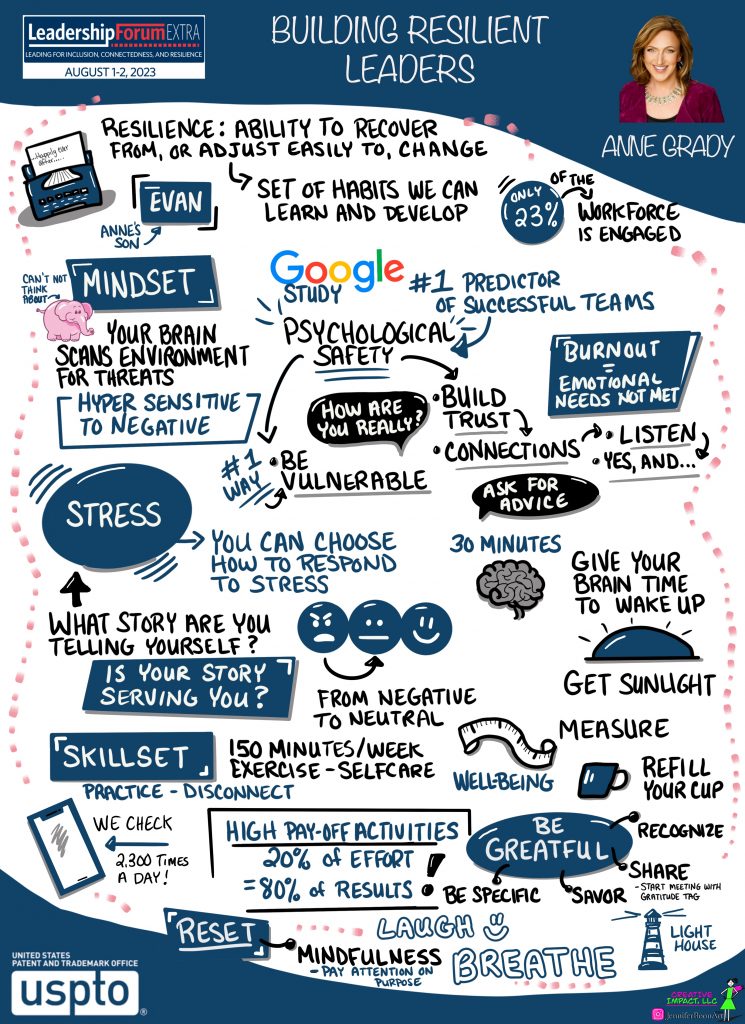 LeadershipForumEXTRA
LEADING FOR INCLUSION, CONNECTEDNESS, AND RESILIENCE
AUGUST 1-2, 2023
BUILDING RESILIENT
LEADERS
ANNE GRADY
...Happily ever
after.....
RESILIENCE: ABILITY TO RECOVER
FROM, OR ADJUST EASILY TO, CHANGE
SET OF HABITS WE CAN
LEARN AND DEVELOP
EVAN
ANNE'S
SON
ONLY
23%
OF THE
WORKFORCE
IS ENGAGED
CAN'T NOT
THINK
ABOUT
MINDSET
YOUR BRAIN
SCANS ENVIRONMENT
FOR THREATS
HYPER SENSITIVE
TO NEGATIVE
Google
STUDY
#1 PREDICTOR
OF SUCCESSFUL TEAMS
PSYCHOLOGICAL
SAFETY
BURNOUT
=
EMOTIONAL
NEEDS NOT MET
HOW ARE
YOU REALLY?
• BUILD
TRUST
• CONNECTIONS
• LISTEN
• YES, AND...
#1
WAY
• BE
VULNERABLE
ASK FOR
ADVICE
STRESS
YOU CAN CHOOSE
HOW TO RESPOND
TO STRESS
30 MINUTES
GIVE YOUR
BRAIN TIME
TO WAKE UP
GET SUNLIGHT
WHAT STORY ARE YOU
TELLING YOURSELF?
IS YOUR STORY
SERVING YOU?
FROM NEGATIVE
TO NEUTRAL
SKILLSET
150 MINUTES/WEEK
EXERCISE - SELFCARE
PRACTICE - DISCONNECT
MEASURE
WELL-BEING
REFILL
YOUR CUP
WE CHECK
2,300 TIMES
A DAY!
HIGH PAY-OFF ACTIVITIES
20% OF EFFORT
= 80% OF RESULTS
!
BE
GREATFUL
RECOGNIZE
SHARE
- START MEETING WITH
GRATITUDE TAG
SAVOR
BE SPECIFIC
RESET
MINDFULNESS
- PAY ATTENTION ON
PURPOSE
LAUGH
BREATHE
LIGHT
HOUSE
UNITED STATES
PATENT AND TRADEMARK OFFICE
uspto®
CREATIVE
IMPACT, LLC